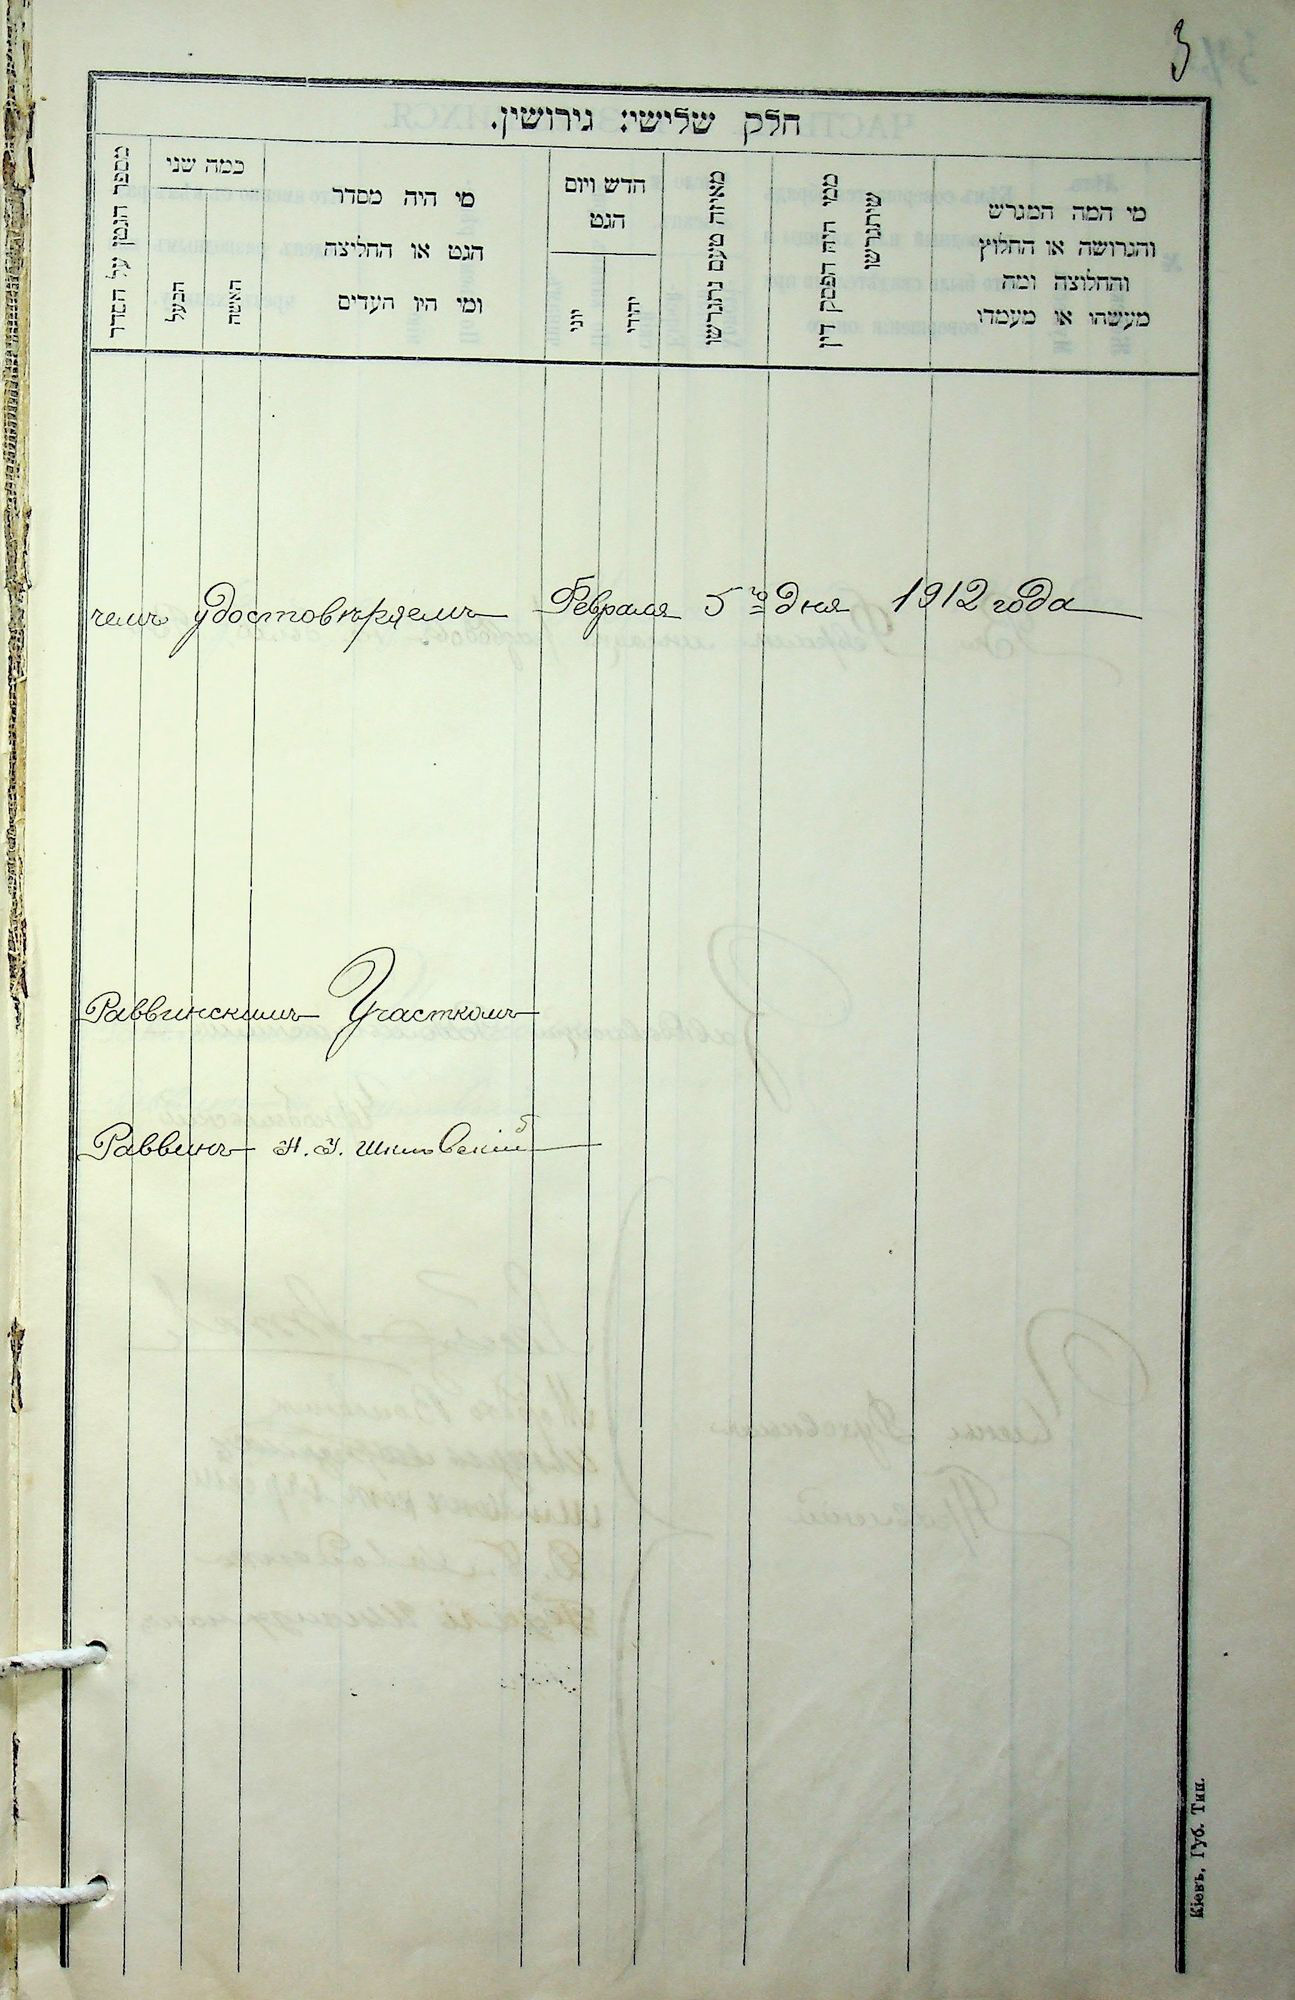 3
חלק שלישי: גירושין.
מספר הגטין על הסדר
כמה שני
הבעל
האשה
מי היה מסדר
הגט או החליצה
ומי היו העדים
חדש ויום
הגט
יוני
יהודי
מאיזה טעם נתגרשו
ממי היה הפסק דין
שיתגרשו
מי המה המגרש
והגרושה או החלוץ
והחלוצה ומה
מעשהו או מעמדו
чемъ удостовѣряемъ Февраля 5го дня 1912 года
Раввинскимъ Участкомъ
Раввинъ
Кіевъ, Губ. Тип.